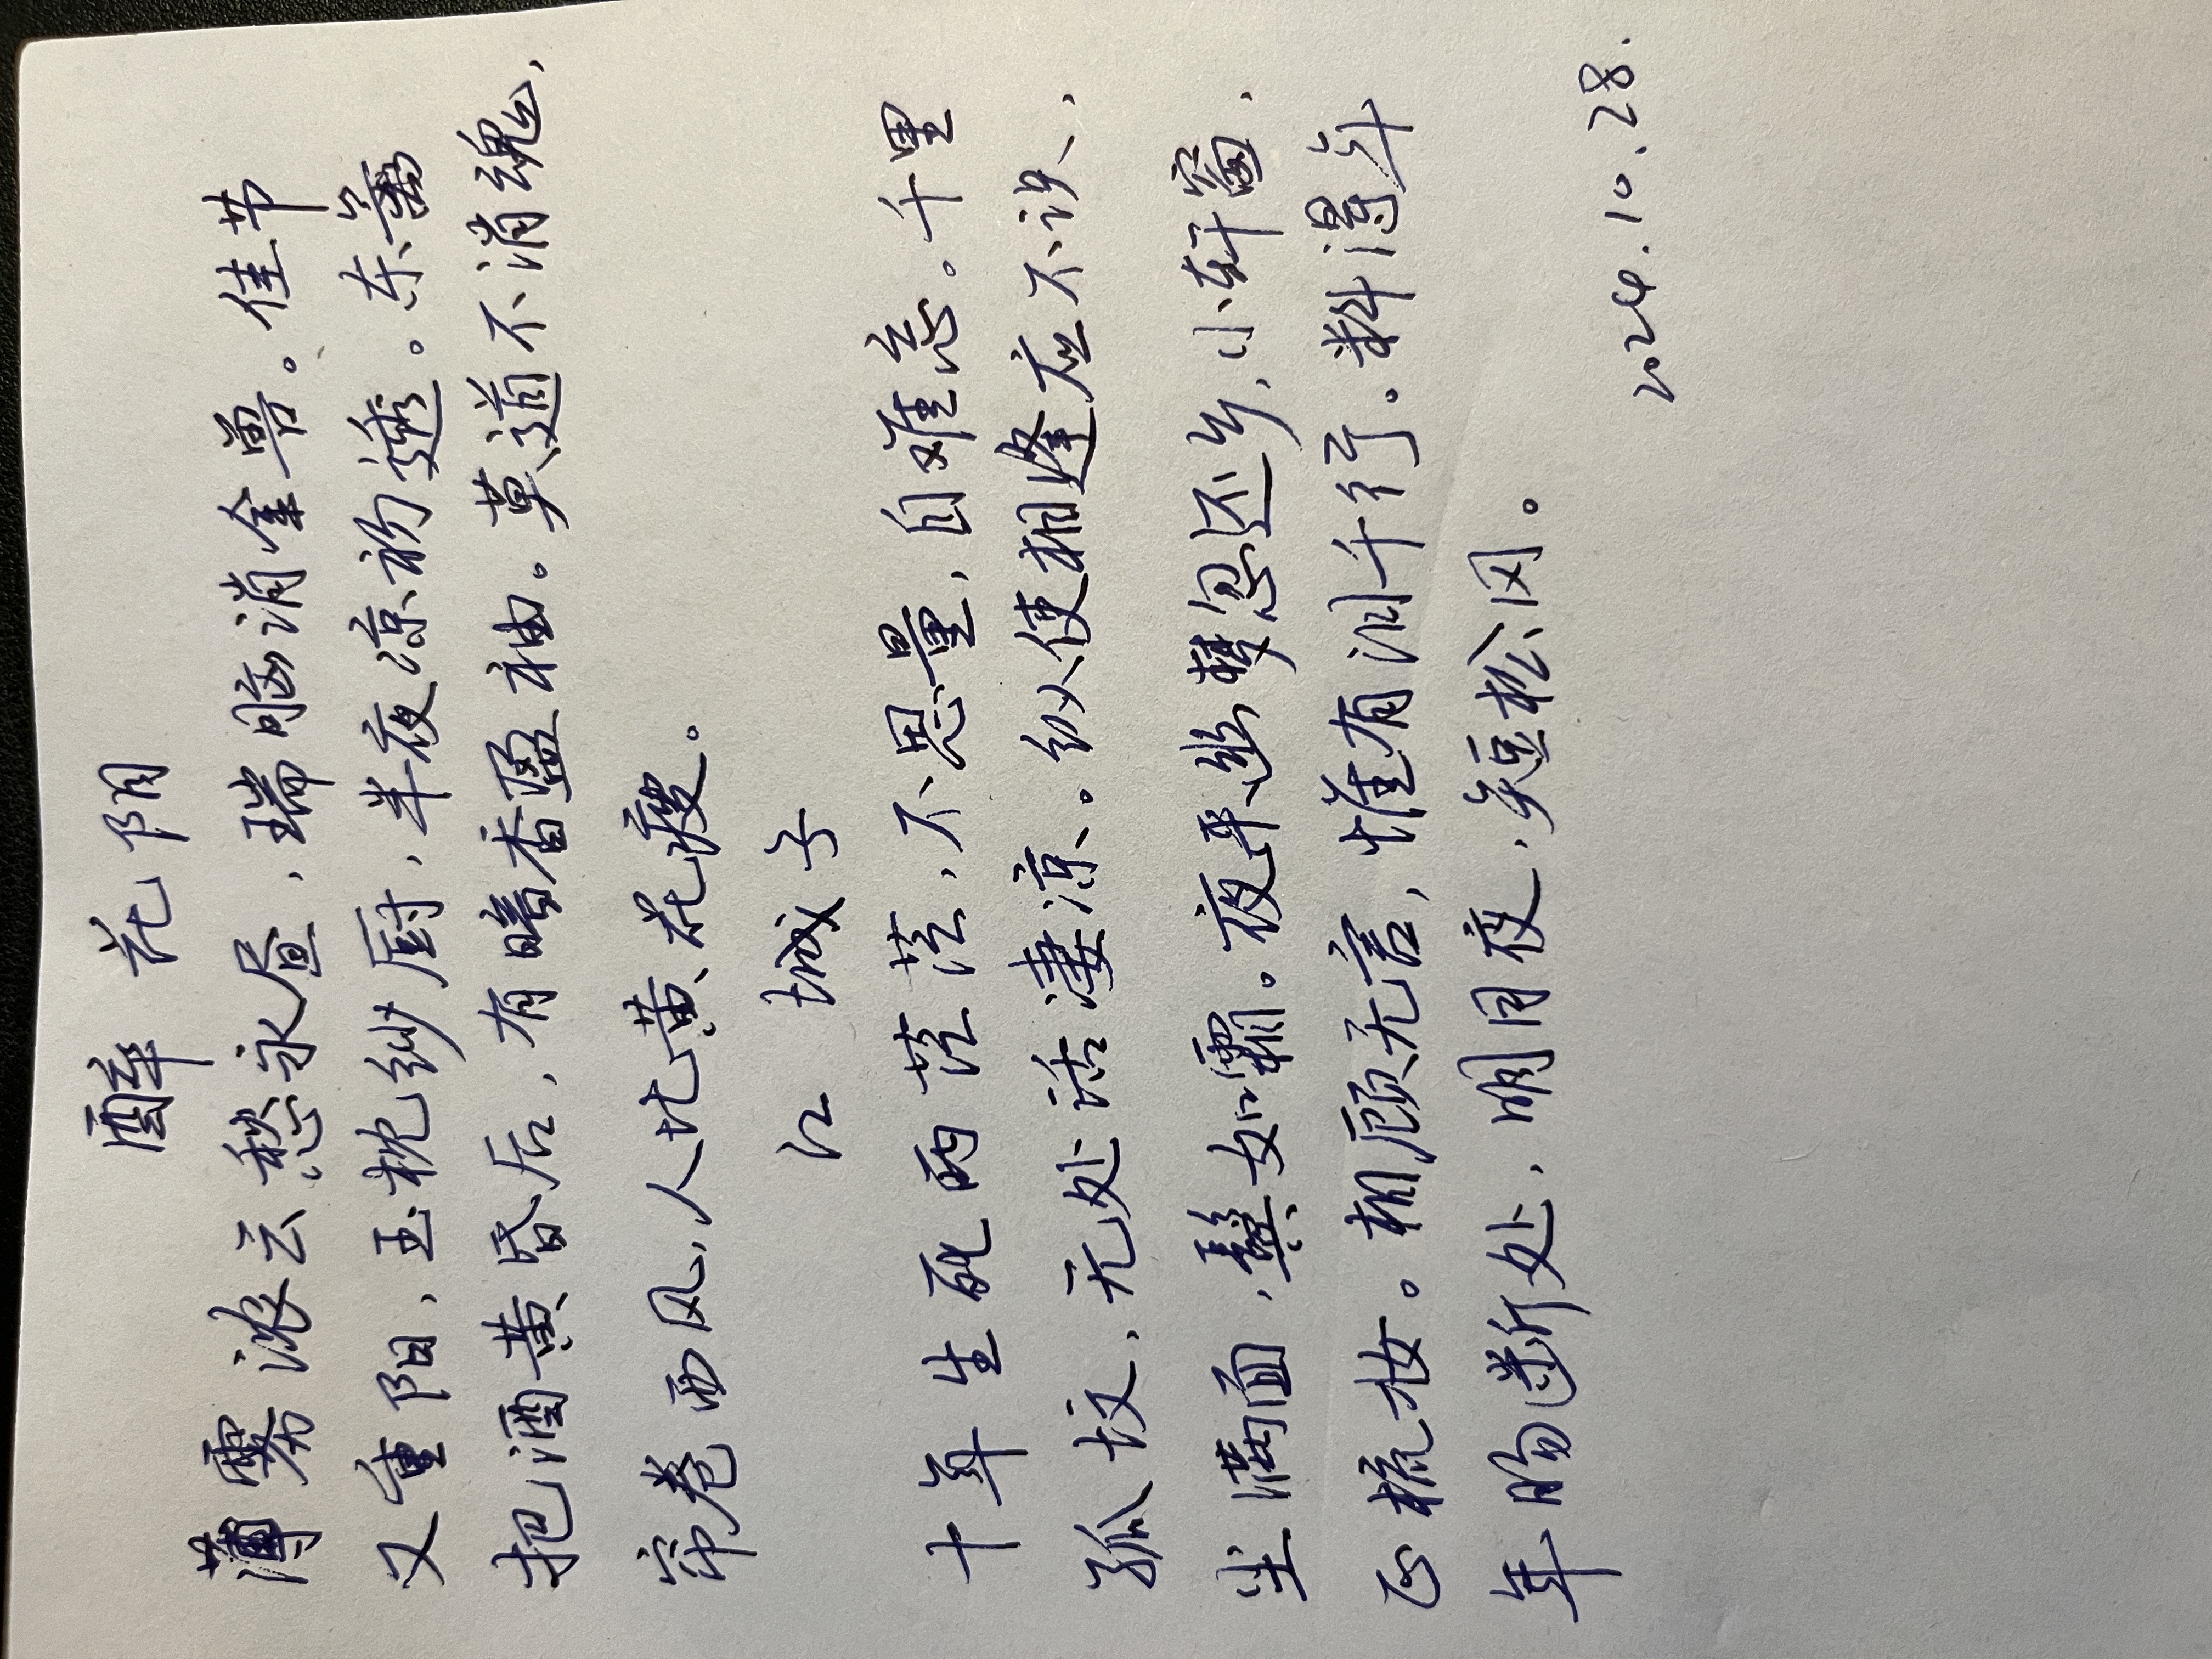 醉花阴
薄雾浓云愁永昼，瑞脑消金兽。佳节
又重阳，玉枕纱厨，半夜凉初透。东篱
把酒黄昏后，有暗香盈袖。莫道不消魂，
帘卷西风，人比黄花瘦。
江城子
十年生死两茫茫，不思量，自难忘。千里
孤坟，无处话凄凉。纵使相逢应不识，
尘满面，鬓如霜。夜来幽梦忽还乡，小轩窗，
正梳妆。相顾无言，惟有泪千行。料得年
年肠断处，明月夜，短松冈。
2024.10.28.